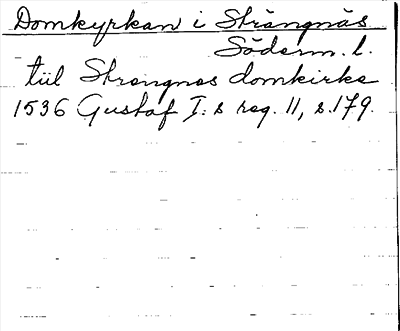 Domkyrkan i Strängnäs
Söderm. l.
till Strengnes domkirke
1536 Gustaf I:s reg. 11, s. 179.